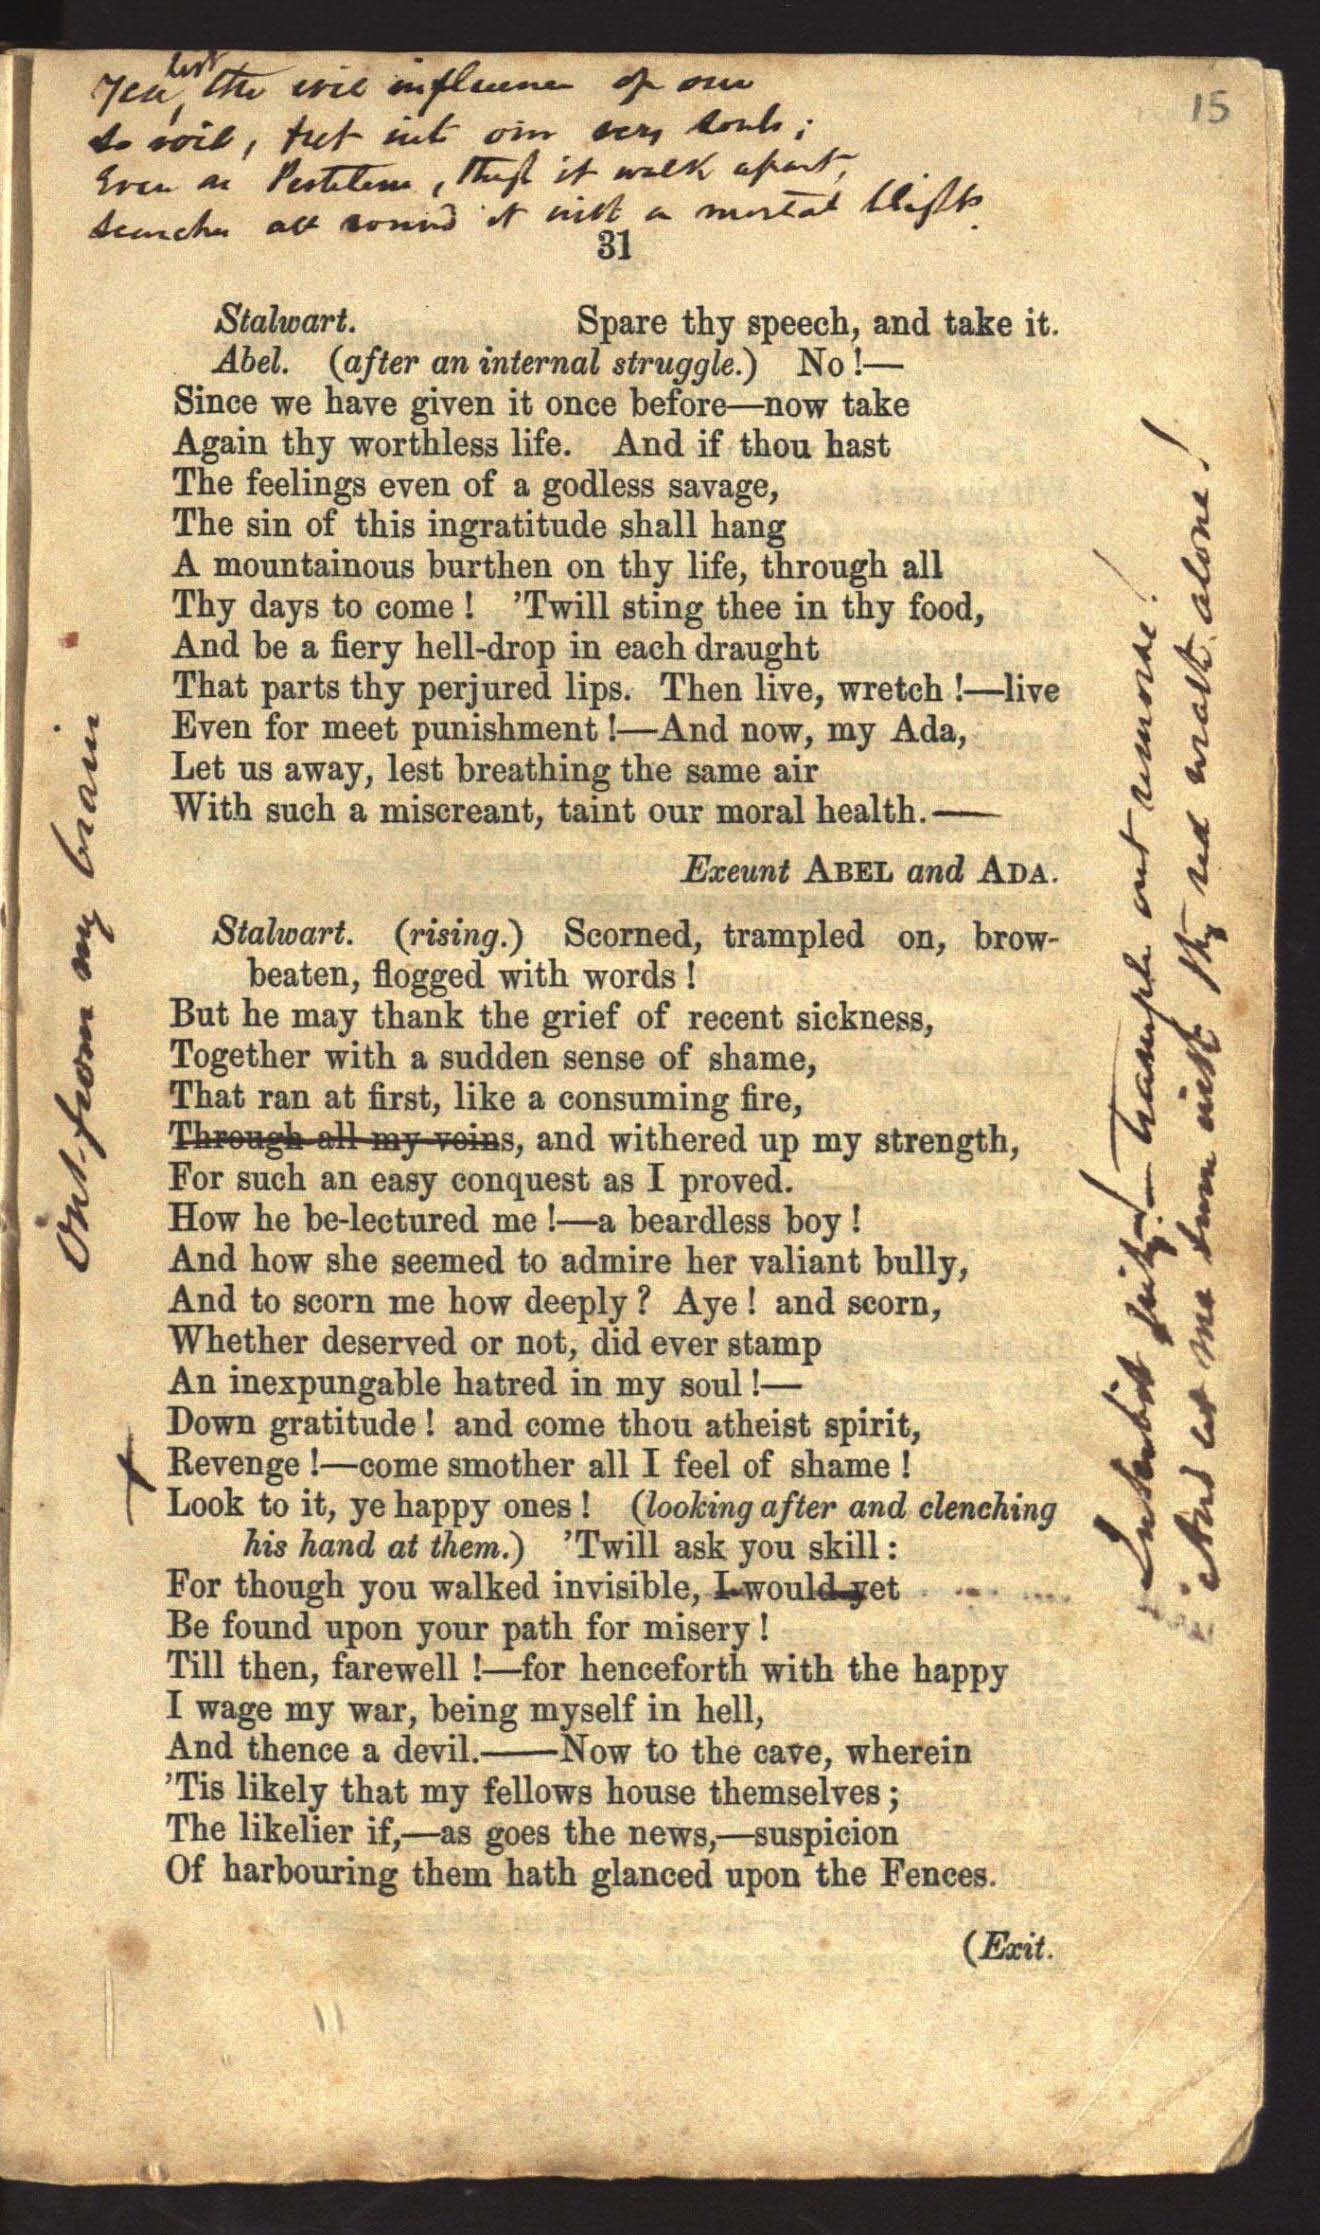 Yea, lest the evil influence of one
so vile, fret into our very souls;
Even as Pestilence, tho' it walk apart,
searches all round it with a mortal blight.
15
31
Stalwart. Spare thy speech, and take it.
Abel. (after an internal struggle.) No!—
Since we have given it once before—now take
Again thy worthless life. And if thou hast
The feelings even of a godless savage,
The sin of this ingratitude shall hang
A mountainous burthen on thy life, through all
Thy days to come! 'Twill sting thee in thy food,
And be a fiery hell-drop in each draught
That parts thy perjured lips. Then live, wretch!—live
Even for meet punishment!—And now, my Ada,
Let us away, lest breathing the same air
With such a miscreant, taint our moral health.——
Exeunt ABEL and ADA.
Stalwart. (rising.) Scorned, trampled on, brow-
beaten, flogged with words!
But he may thank the grief of recent sickness,
Together with a sudden sense of shame,
That ran at first, like a consuming fire,
Through all my veins, and withered up my strength,
For such an easy conquest as I proved.
How he be-lectured me!—a beardless boy!
And how she seemed to admire her valiant bully,
And to scorn me how deeply? Aye! and scorn,
Whether deserved or not, did ever stamp
An inexpungable hatred in my soul!—
Down gratitude! and come thou atheist spirit,
Revenge!—come smother all I feel of shame!
Look to it, ye happy ones! (looking after and clenching
his hand at them.) 'Twill ask you skill:
For though you walked invisible, I would yet
Be found upon your path for misery!
Till then, farewell!—for henceforth with the happy
I wage my war, being myself in hell,
And thence a devil.——Now to the cave, wherein
'Tis likely that my fellows house themselves;
The likelier if,—as goes the news,—suspicion
Of harbouring them hath glanced upon the Fences.
(Exit.
Out from my brain
trample out remorse!
And let me burn with thy red wrath alone!